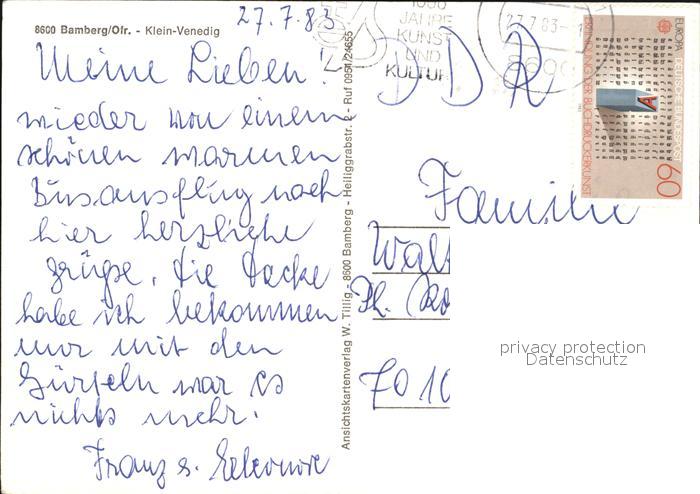 8600 Bamberg/Ofr. - Klein-Venedig
27.7.83
Meine Lieben!
wieder von einem
schönen warmen
Busausflug nach
hier herzliche
Grüße, die Jacke
habe ich bekommen
nur mit den
Gürteln war es
nichts mehr.
Franz u. Eleonore
Ansichtskartenverlag W. Tillig - 8600 Bamberg - Heiliggrabstr. 2 - Ruf 0951/24655
1000
JAHRE
KUNST
UND
KULTUR
27.7.83
8600
EUROPA DEUTSCHE BUNDESPOST
ERFINDUNG DER BUCHDRUCKERKUNST
60
A
DDR
Familie
Wal
Pl.
7010
privacy protection
Datenschutz